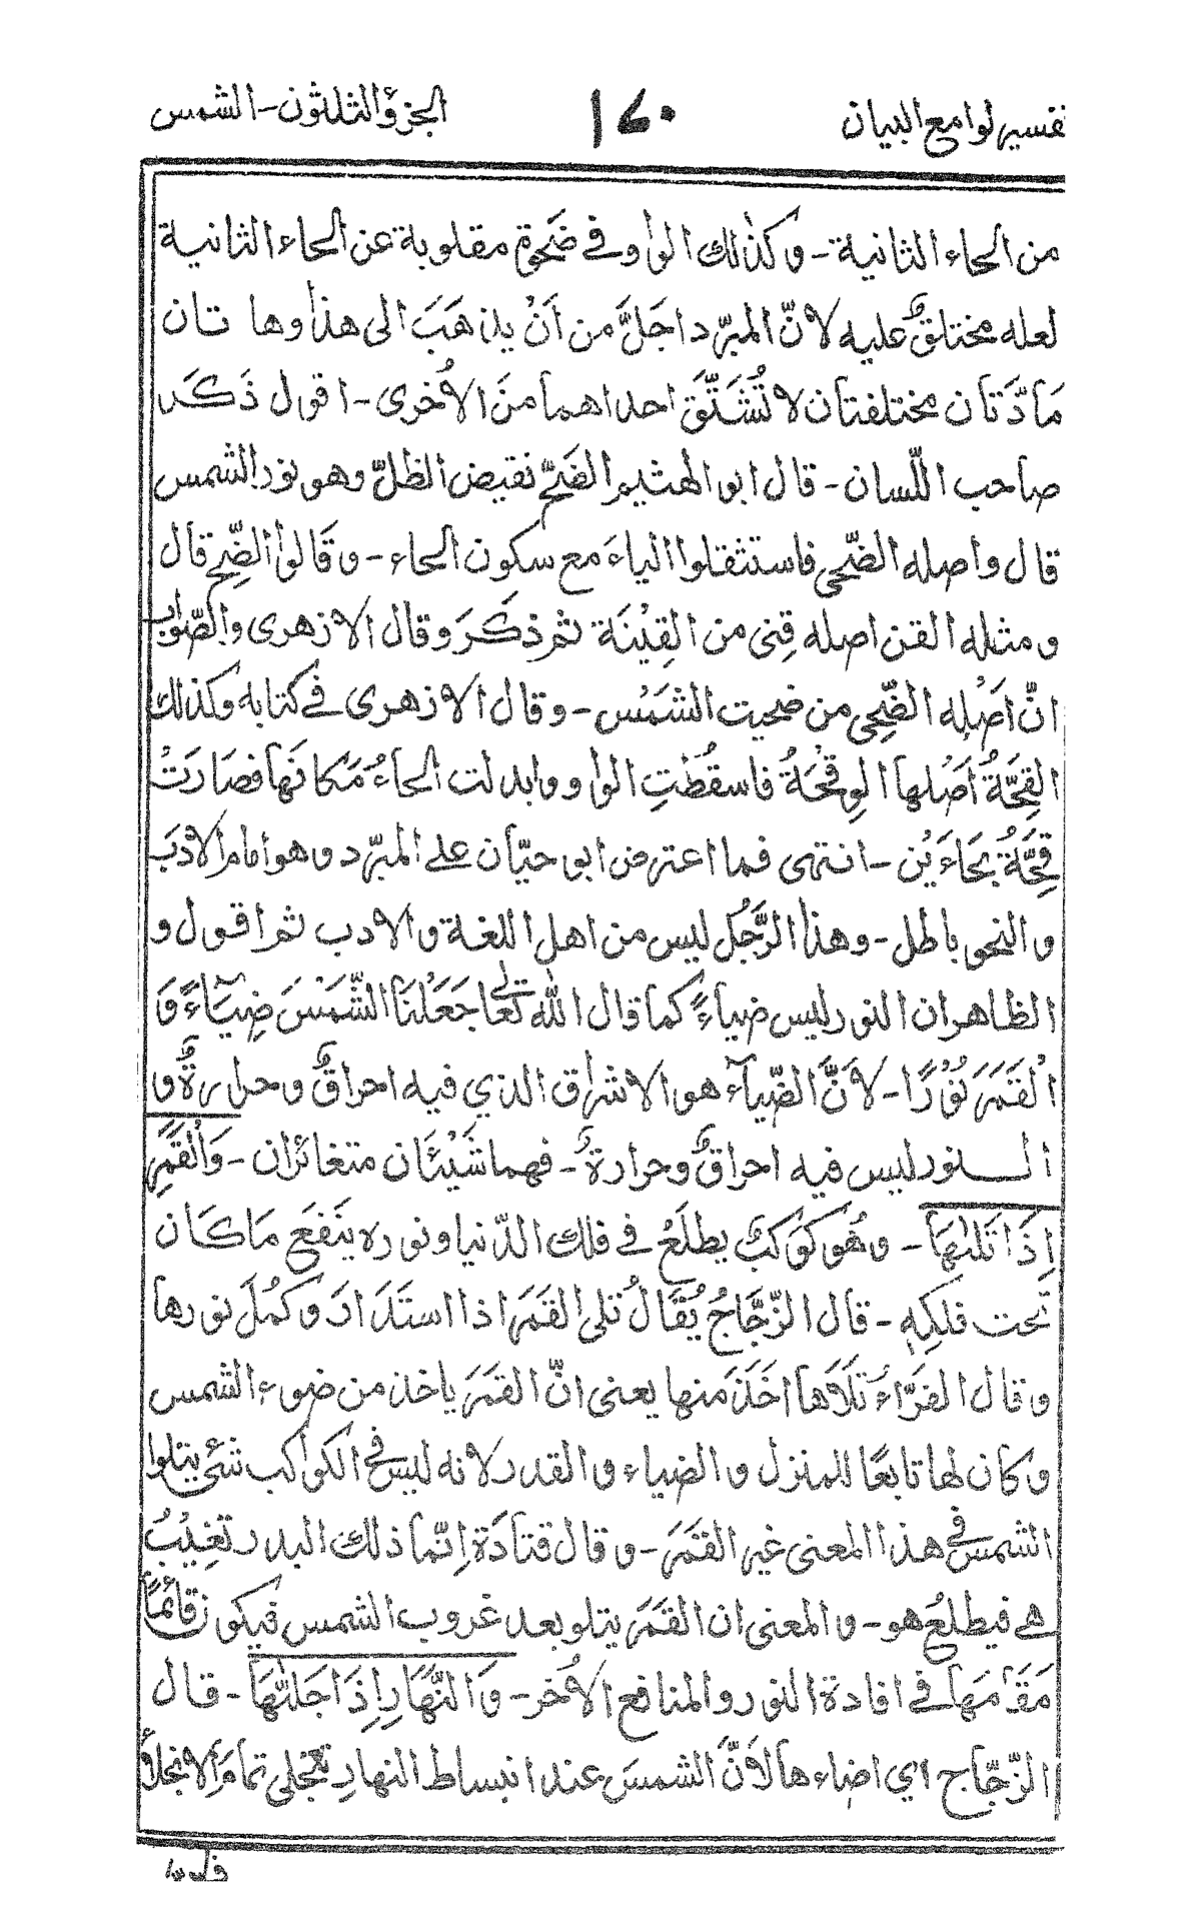 تفسير لوامع البيان ١٧٠ الجزؤ الثلثون - الشمس
من الحاء الثانية - وكذلك الواو في ضحوة مقلوبة عن الحاء الثانية
لعله مختلق عليه لانّ المبرّد اجَلَّ من اَنْ يذهَبَ الى هذا وهاتان
مَادَّتان مختلفتان لا تُشَتَّقَ احداهما منَ الاُخرى - اقول ذَكَر
صاحب اللّسان - قال ابو الهثيم الضَحّ نقيض الظلّ وهو نور الشمس
قال واصله الضّحى فاستثقلوا الياءَ مع سكون الحاء - وقالوا الضِّح قال
ومثله القن اصله قِنى من القِيْنَة ثم ذكَرَ وقال الازهرى والصّواب
انّ اَصْله الضِّحى من ضحيت الشمْس - وقال الازهرى في كتابه وكذلك
القِحَّةُ اَصْلها الوِقْحَةُ فاسقُطتِ الواو وابدلت الحاءُ مَكانَها فصَارَتْ
قِحَّةُ بحَاءَيْن - انتهى فما اعترض ابو حيّان على المبرّد وهو امام الادَب
و النحو باطل - وهذا الرَّجُل ليس من اهل اللغة و الادب ثم اقول و
الظاهر ان النور ليس ضياءً كما قال الله تعالى جَعَلنَا الشَّمْسَ ضِيَآءً وَ
الْقَمَرَ نُوْرًا - لاَنَّ الضّيآءَ هو الاشراق الذي فيه احراقٌ وحرارةٌ و
النور ليس فيه احراقٌ وحرارةٌ - فهما شَيْئَان متغائران - وَالْقَمَرِ
اِذَا تَلٰىهَا - وهُو كَوَكبٌ يطلَعُ في فلك الدّنيا ونوره ينَفَعَ مَا كَان
تحت فلكِهٖ - قال الزّجَّاجُ يُقَالُ تلى القَمَرَ اذا استَدَارَ وكمُلَ نورها
وقال الفرَّاءَ تَلَاهَا اخَذَ منها يعنى انّ القمَرَ ياخذ من ضوء الشمس
وكان لها تابعًا للمنزل والضياء والقدر لانه ليس في الكواكب شئ يتلوا
الشمس في هذا المعنى غير القَمَرَ - وقال قتادَة اِنّما ذلك البدر تغِيْبُ
هي فيطلعُ هو - والمعنى ان القَمَرَ يتلو بعد غروب الشمس فيكون قائمًا
مَقَامَهَا في افادة النور والمنافع الاُخر - وَالنَّهَارِ اِذَا جَلىّٰهَا - قال
الزّجّاج اي اضاءها لاَنَّ الشمسَ عند انبساط النهارِ تنجلى تمامَ الانجلاء